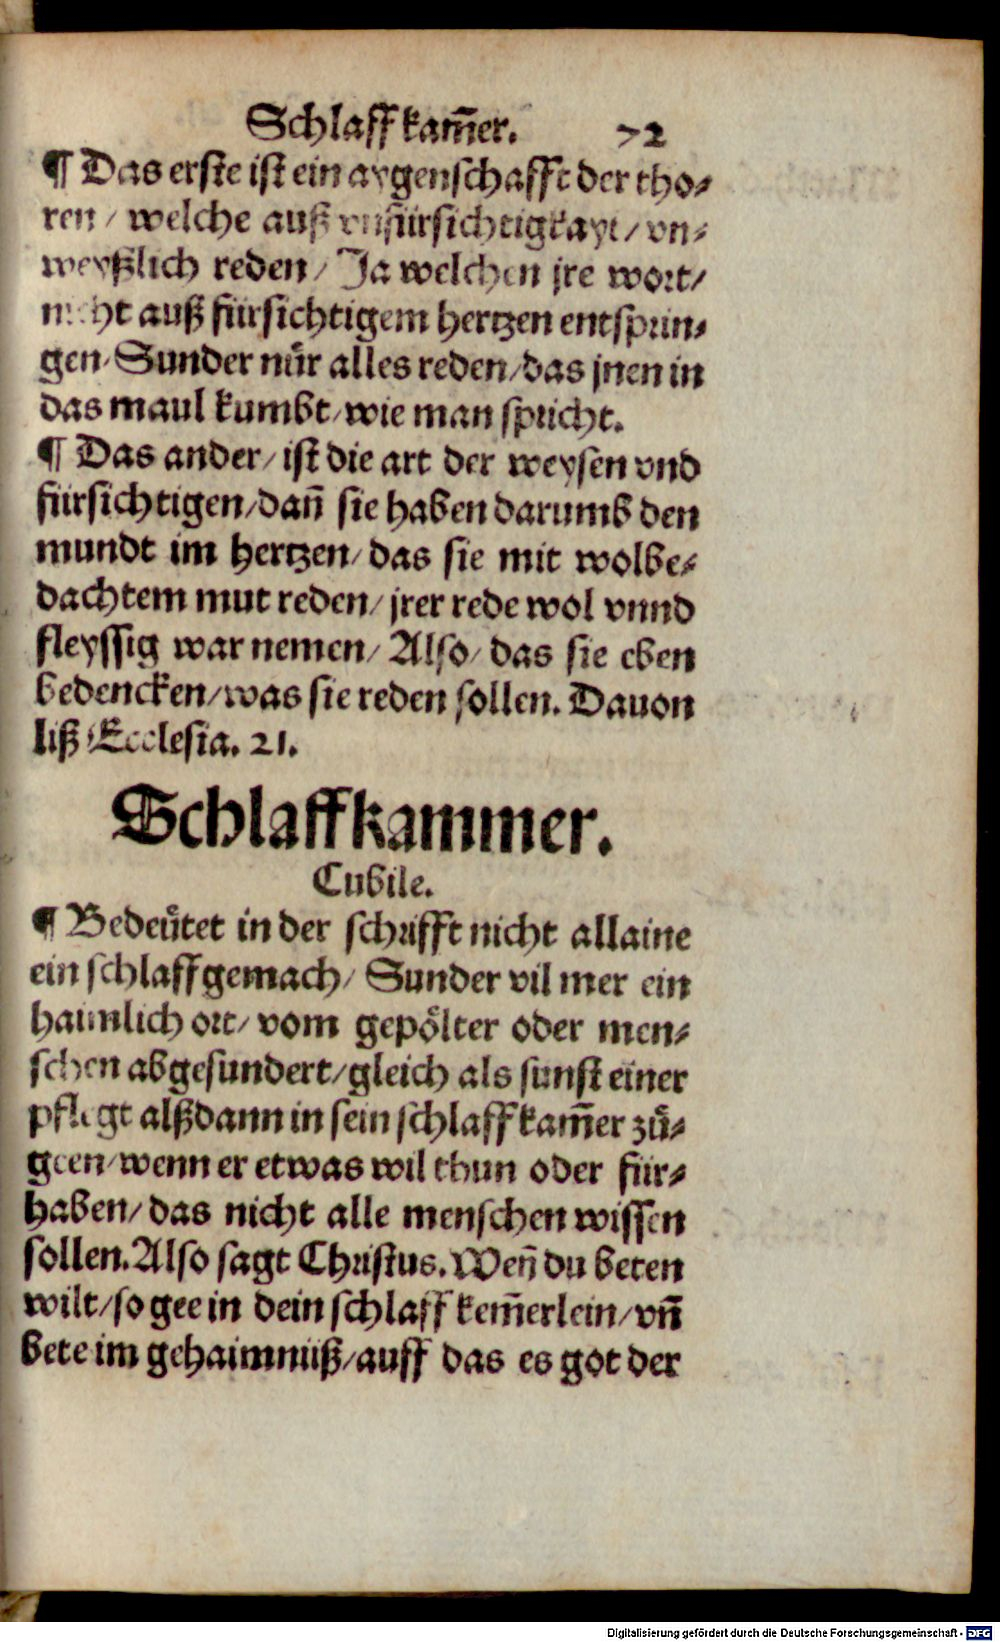 Schlaffkam̄er. 72
¶ Das erste ist ein aygenschafft der tho⸗
ren / welche auß vnfürsichtigkayt / vn⸗
weyßlich reden / Ja welchen jre wort /
nicht auß fürsichtigem hertzen entsprin⸗
gen / Sunder nůr alles reden / das jnen in
das maul kumbt / wie man spricht.
¶ Das ander / ist die art der weysen vnd
fürsichtigen / dan̄ sie haben darumb den
mundt im hertzen / das sie mit wolbe⸗
dachtem mut reden / jrer rede wol vnnd
fleyssig war nemen / Also / das sie eben
bedencken / was sie reden sollen. Dauon
liß Ecclesia. 21.
Schlaffkammer.
Cubile.
¶ Bedeütet in der schrifft nicht allaine
ein schlaffgemach / Sunder vil mer ein
haimlich ort / vom gepölter oder men⸗
schen abgesundert / gleich als sunst einer
pflegt alßdann in sein schlaffkam̄er zů⸗
geen / wenn er etwas wil thun oder für⸗
haben / das nicht alle menschen wissen
sollen. Also sagt Christus. Wen̄ du beten
wilt / so gee in dein schlaffkem̄erlein / vn̄
bete im gehaimnüß / auff das es got der
Digitalisierung gefördert durch die Deutsche Forschungsgemeinschaft - DFG